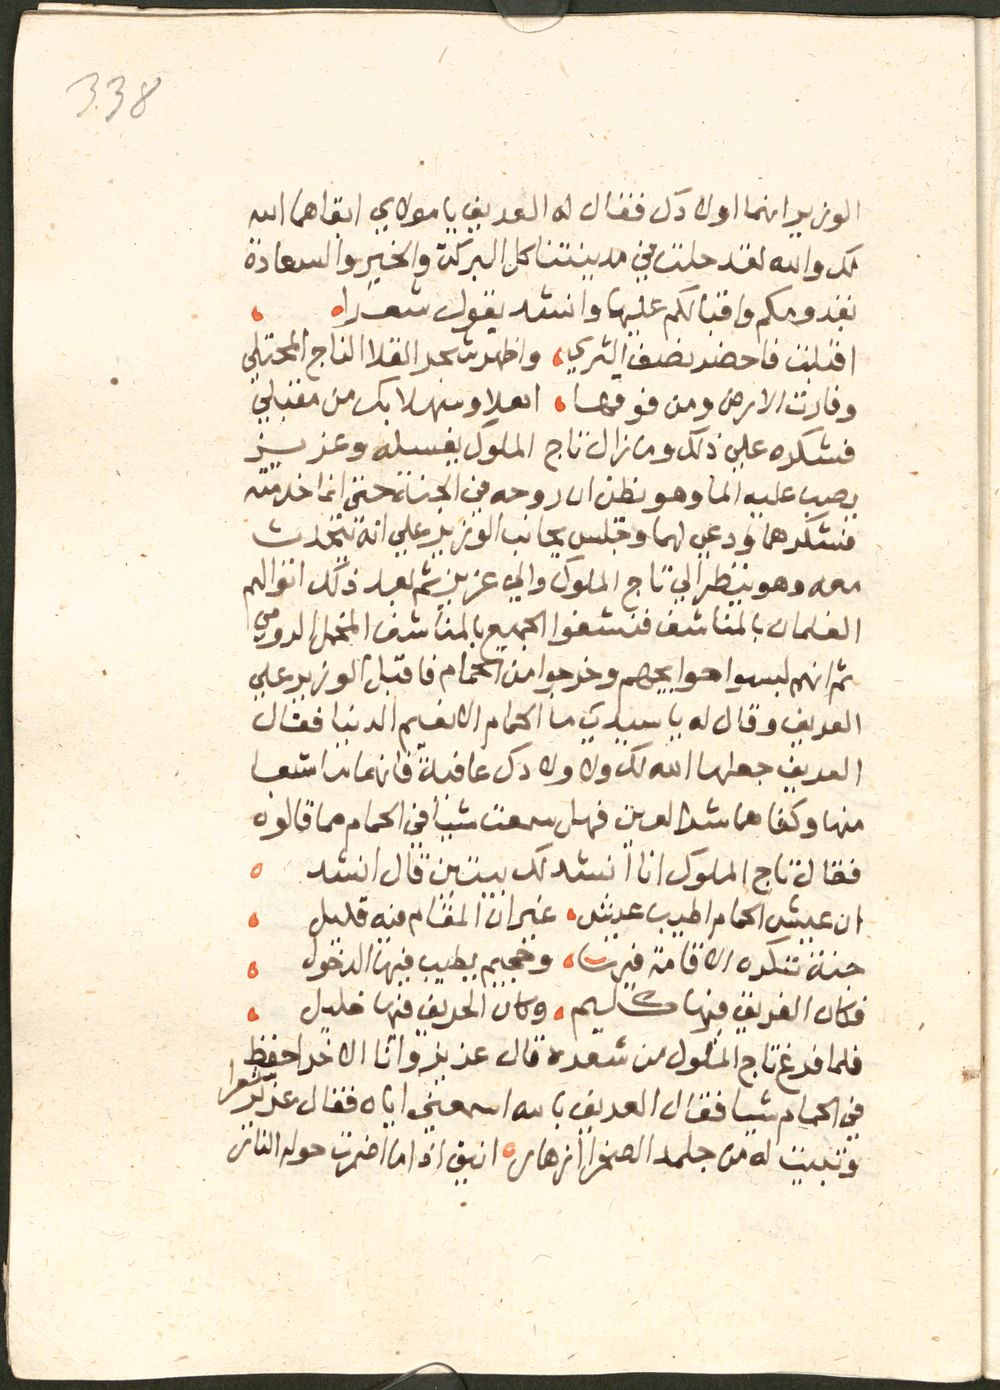 338
الوزير انهما اولادك فقال له العريف يا مولاي ابقاهما الله
لك والله لقد حلت في مدينتنا كل البركة والخير والسعادة
بقدومكم واقبالكم عليها وانشد يقول شعرا
اقبلت فاخضر نصف الثري واظهرت الناج المجتلي
ونادت الارض ومن فوقها اهلا وسهلا بك من مقبلي
فشكره علي ذلك وما زال تاج الملوك يغسله وعزيز
يصب عليه الما وهو يظن ان روحه في الجنة حتي اتما خدمته
فشكرهما ودعي لهما وجلس بجانب الوزير علي انه يتحدث
معه وهو ينظر الي تاج الملوك والي عزيز ثم بعد ذلك اتوا لهم
الغلمان بالمناشف فنشفوا الجميع بالمناشف المخمل الرومي
ثم انهم لبسوا حوايجهم وخرجوا من الحمام فاقبل الوزير علي
العريف وقال له يا سيدي ما الحمام الا نعيم الدنيا فقال
العريف جعلها الله لك ولاولادك عافية فانهما
منها وكفاهما شر العين فهل سمعت شيا في الحمام مما قالوه
فقال تاج الملوك انا انشد لك بيتين قال انشد
ان عيش الحمام اطيب عيش غير ان المقام فيه قليل
جنة تكره الاقامة فيها وجحيم يطيب فيها الدخول
فكان الغريق فيها كليم وكان الحريق فيها خليل
فلما فرغ تاج الملوك من شعره قال عزيز وانا الاخر احفظ
في الحمام شيا فقال العريف بالله اسمعني اياه فقال عزيز شعرا
وبيت له من جلمد الصخر ازهار انيق اذا ما اضرمت حوله النار